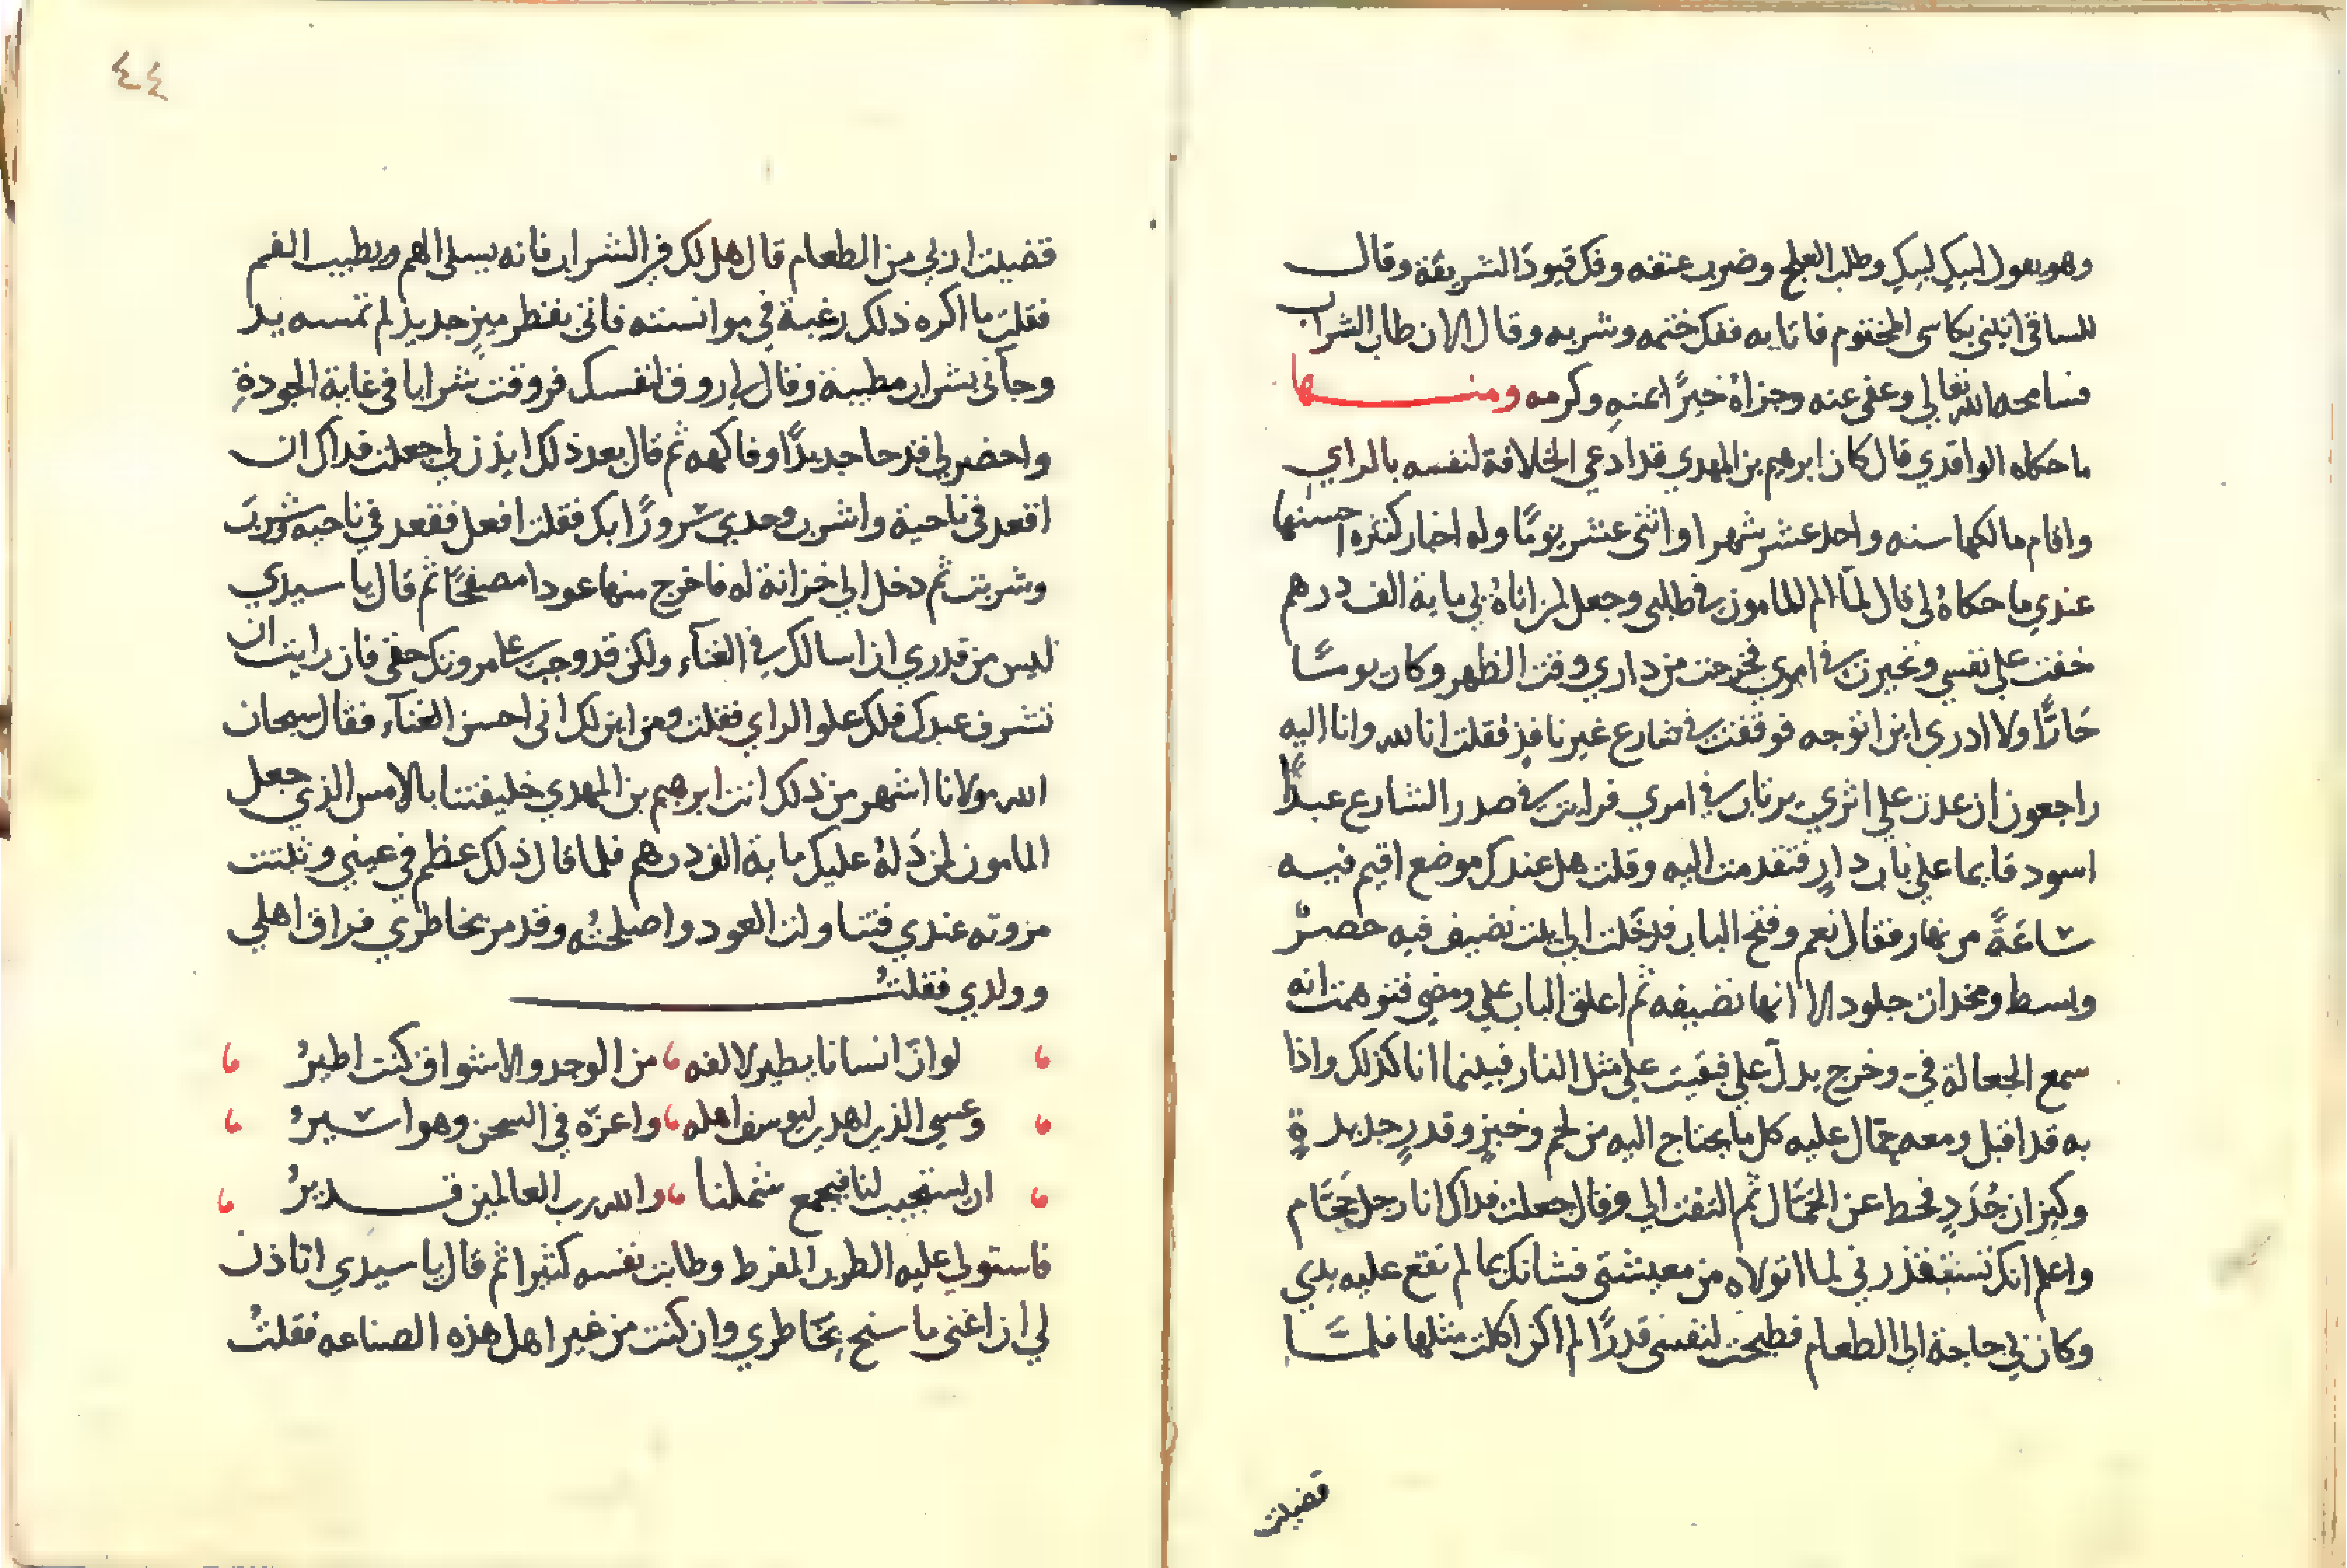 وهو يقول لبيك لبيك وطلب العلج وضرب عنقه وفك قيود الشريفة وقال
للساقي ايتني بكاسي المختوم فاتا به ففك ختمه وشربه وقال الان طاب الشراب
فسامحه الله تعالي وعفي عنه وجزاهُ خيرًا بمنهِ وكرمه ومنها
ما حكاه الواقدي قال كان ابرهيم بن المهدي قد ادعي الخلافة لنفسه بالراي
واقام مالكها سنه واحد عشر شهرا واثني عشر يومًا وله اخبار كثيره احسنها
عندي ما حكاهُ لي قال لمّا الم المامون في طلبي وجعل لمن اتاهُ بي ماية الف درهم
خفت علي نفسي وتحيرت في امري فخرجت من داري وقت الظهر وكان يومًا
حَارًّا ولا ادري اين اتوجه فوقفت في شارع غير نافذٍ فقلت انا لله وانا اليه
راجعون ان عدت علي اثري يرتاب في امري فرايت في صدر الشارع عبدًا
اسود قايما علي باب دارٍ فتقدمت اليه وقلت هل عندك موضع اقيم فيه
سَاعَةً من نهار فقال نعم وفتح الباب فدخَلت الي بيت نضيف فيه حصرٌ
وبسط ومخدات جلود الا انها نضيفه ثم اغلق الباب علي ومضي فتوهمت انه
سمع الجعالة في وخرج يدلّ علي فبقيت علي مثل النار فبينما انا كذلك واذا
به قد اقبل ومعه حمّال عليه كل ما يحتاج اليه من لحم وخبزٍ وقدرٍ جديدةٍ
وكيزان جُدَدٍ فحط عن الحمّال ثم التفت الي وقال جعلت فداك انا رجل حجّام
واعلم انك تستقذرني لما اتولاه من معيشتي فشانك بما لم تقع عليه يدي
وكان بي حاجة الي الطعام فطبخت لنفسي قدرًا لم اكن اكلت مثلها فلمّا
قضيت
٤٤
قضيت اربي من الطعام قال هل لك في الشراب فانه يسلي الهم ويطيب الفم
فقلت ما اكره ذلك رغبة في موانسته فاتي بقطرميزٍ جديدٍ لم تمسه يد
وجآني بشراب مطيبة وقال لي روق لنفسك فروقت شرابا في غاية الجودةِ
واحضر لي قدحا جديدًا وفاكهه ثم قال بعد ذلك ايذن لي جعلت فداك ان
اقعد في ناحية واشرب وحدي سرورًا بك فقلت افعل فقعد في ناحيه وشربَ
وشربت ثم دخل الي خزانة له فاخرج منها عودا مصفحًا ثم قال يا سيدي
ليس من قدري ان اسالك في الغنآء ولكن قد وجب علي مروتك حقي فان رايت ان
تشرف عبدك فلك علو الراي فقلت ومن اين لك اني احسن الغنآء فقال سبحان
الله مولانا اشهر من ذلك انت ابرهيم بن المهدي خليفتنا بالامس الذي جعل
المامون لمن دَلهُ عليك ماية الف درهم فلما قال ذلك عظم في عيني وثبتت
مروته عندي فتناولت العود واصلحتُه وقد مر بخاطري فراق اهلي
وولدي فقلتُ
لو انّ انسانا يطير لالفه من الوجد والاشواق كنت اطيرُ
وعسي الذي اهدي ليوسف اهله واعزّه في السجن وهو اسيرُ
ان يستجيب لنا فيجمع شملنا والله رب العالمين قديرُ
فاستولي عليه الطرب المفرط وطابت نفسه كثيرا ثم قال يا سيدي اتاذن
لي ان اغني ما سنح بخَاطري وان كنت من غير اهل هذه الصناعه فقلتُ